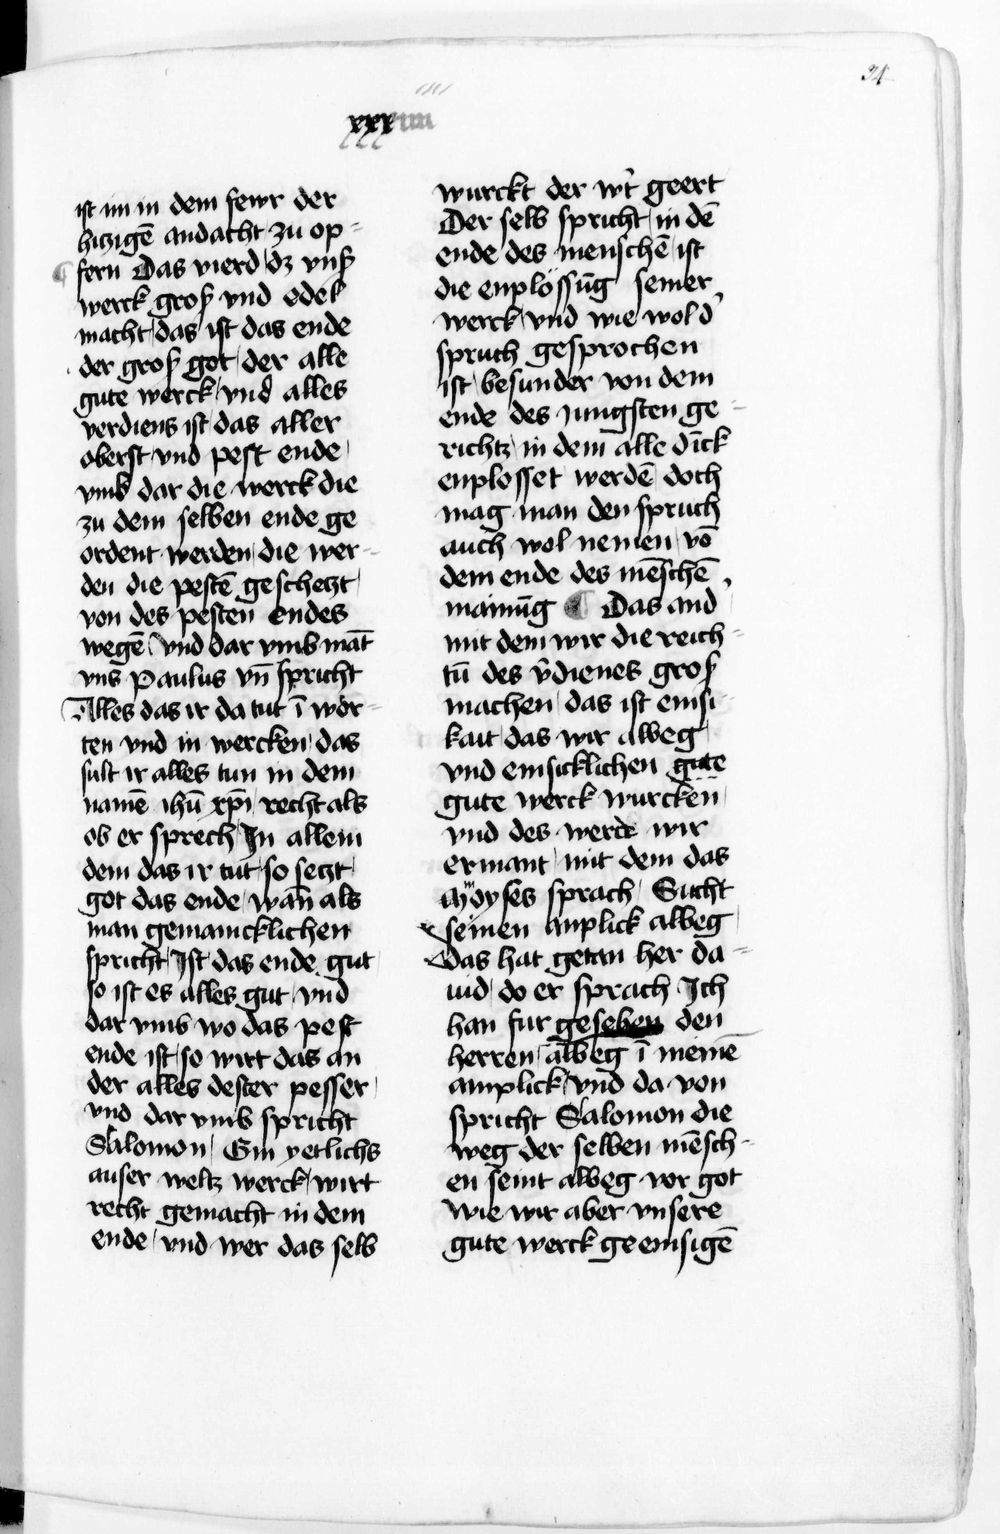 34
xxxiiii
ist im in dem fewr der
hitzigē andacht zu op-
fern Das vierd dz vnsʒ
werck groß vnd edel
macht das ist das ende
der groß got der alle
gute werck vnd alles
verdiens ist das aller
oberst vnd pest ende
vmb dar die werck die
zu dem selben ende ge
ordent werden die wer-
den die pestē geschetzt
von des pesten endes
wegē vnd dar vmb māt
vns Paulus vn̄ spricht
Alles das ir da tut ī wor-
ten vnd in wercken das
sult ir alles tun in dem
namē ihū xp̄i recht als
ob er sprech In allem
dem das ir tut so setzt
got das ende wān als
man gemaincklichen
spricht Ist das ende gut
so ist es alles gut vnd
dar vmb wo das pest
ende ist so wirt das an
der alles dester pesser
vnd dar vmb spricht
Salomon Ein yetlichs
auser weltz werck wirt
recht gemacht in dem
ende vnd wer das selb
wurckt der wt̄ geert
Der selb spricht in dē
ende des menschē ist
die enplössūg seiner
werck vnd wie wol d'
spruch gesprochen
ist besunder von dem
ende des jungsten ge-
richtz in dem alle dīck
enplosset werdē doch
mag man den spruch
auch wol nemen vō
dem ende des mēschē
mainūg ¶ Das and'
mit dem wir die reich-
tū des v̄dienes groß
machen das ist emsi-
kait das wir albeg
vnd emsicklichen gute
gute werck wurcken
vnd des werde wir
ermant mit dem das
Moyses sprach Sucht
seinen anplick albeg
Das hat getan her da-
uid do er sprach Ich
han fur gesehen den
herren albeg ī meinē
anplick vnd da von
spricht Salomon die
weg der selben mēsch-
en seint albeg vor got
Wie wir aber vnsere
gute werck geemsigē